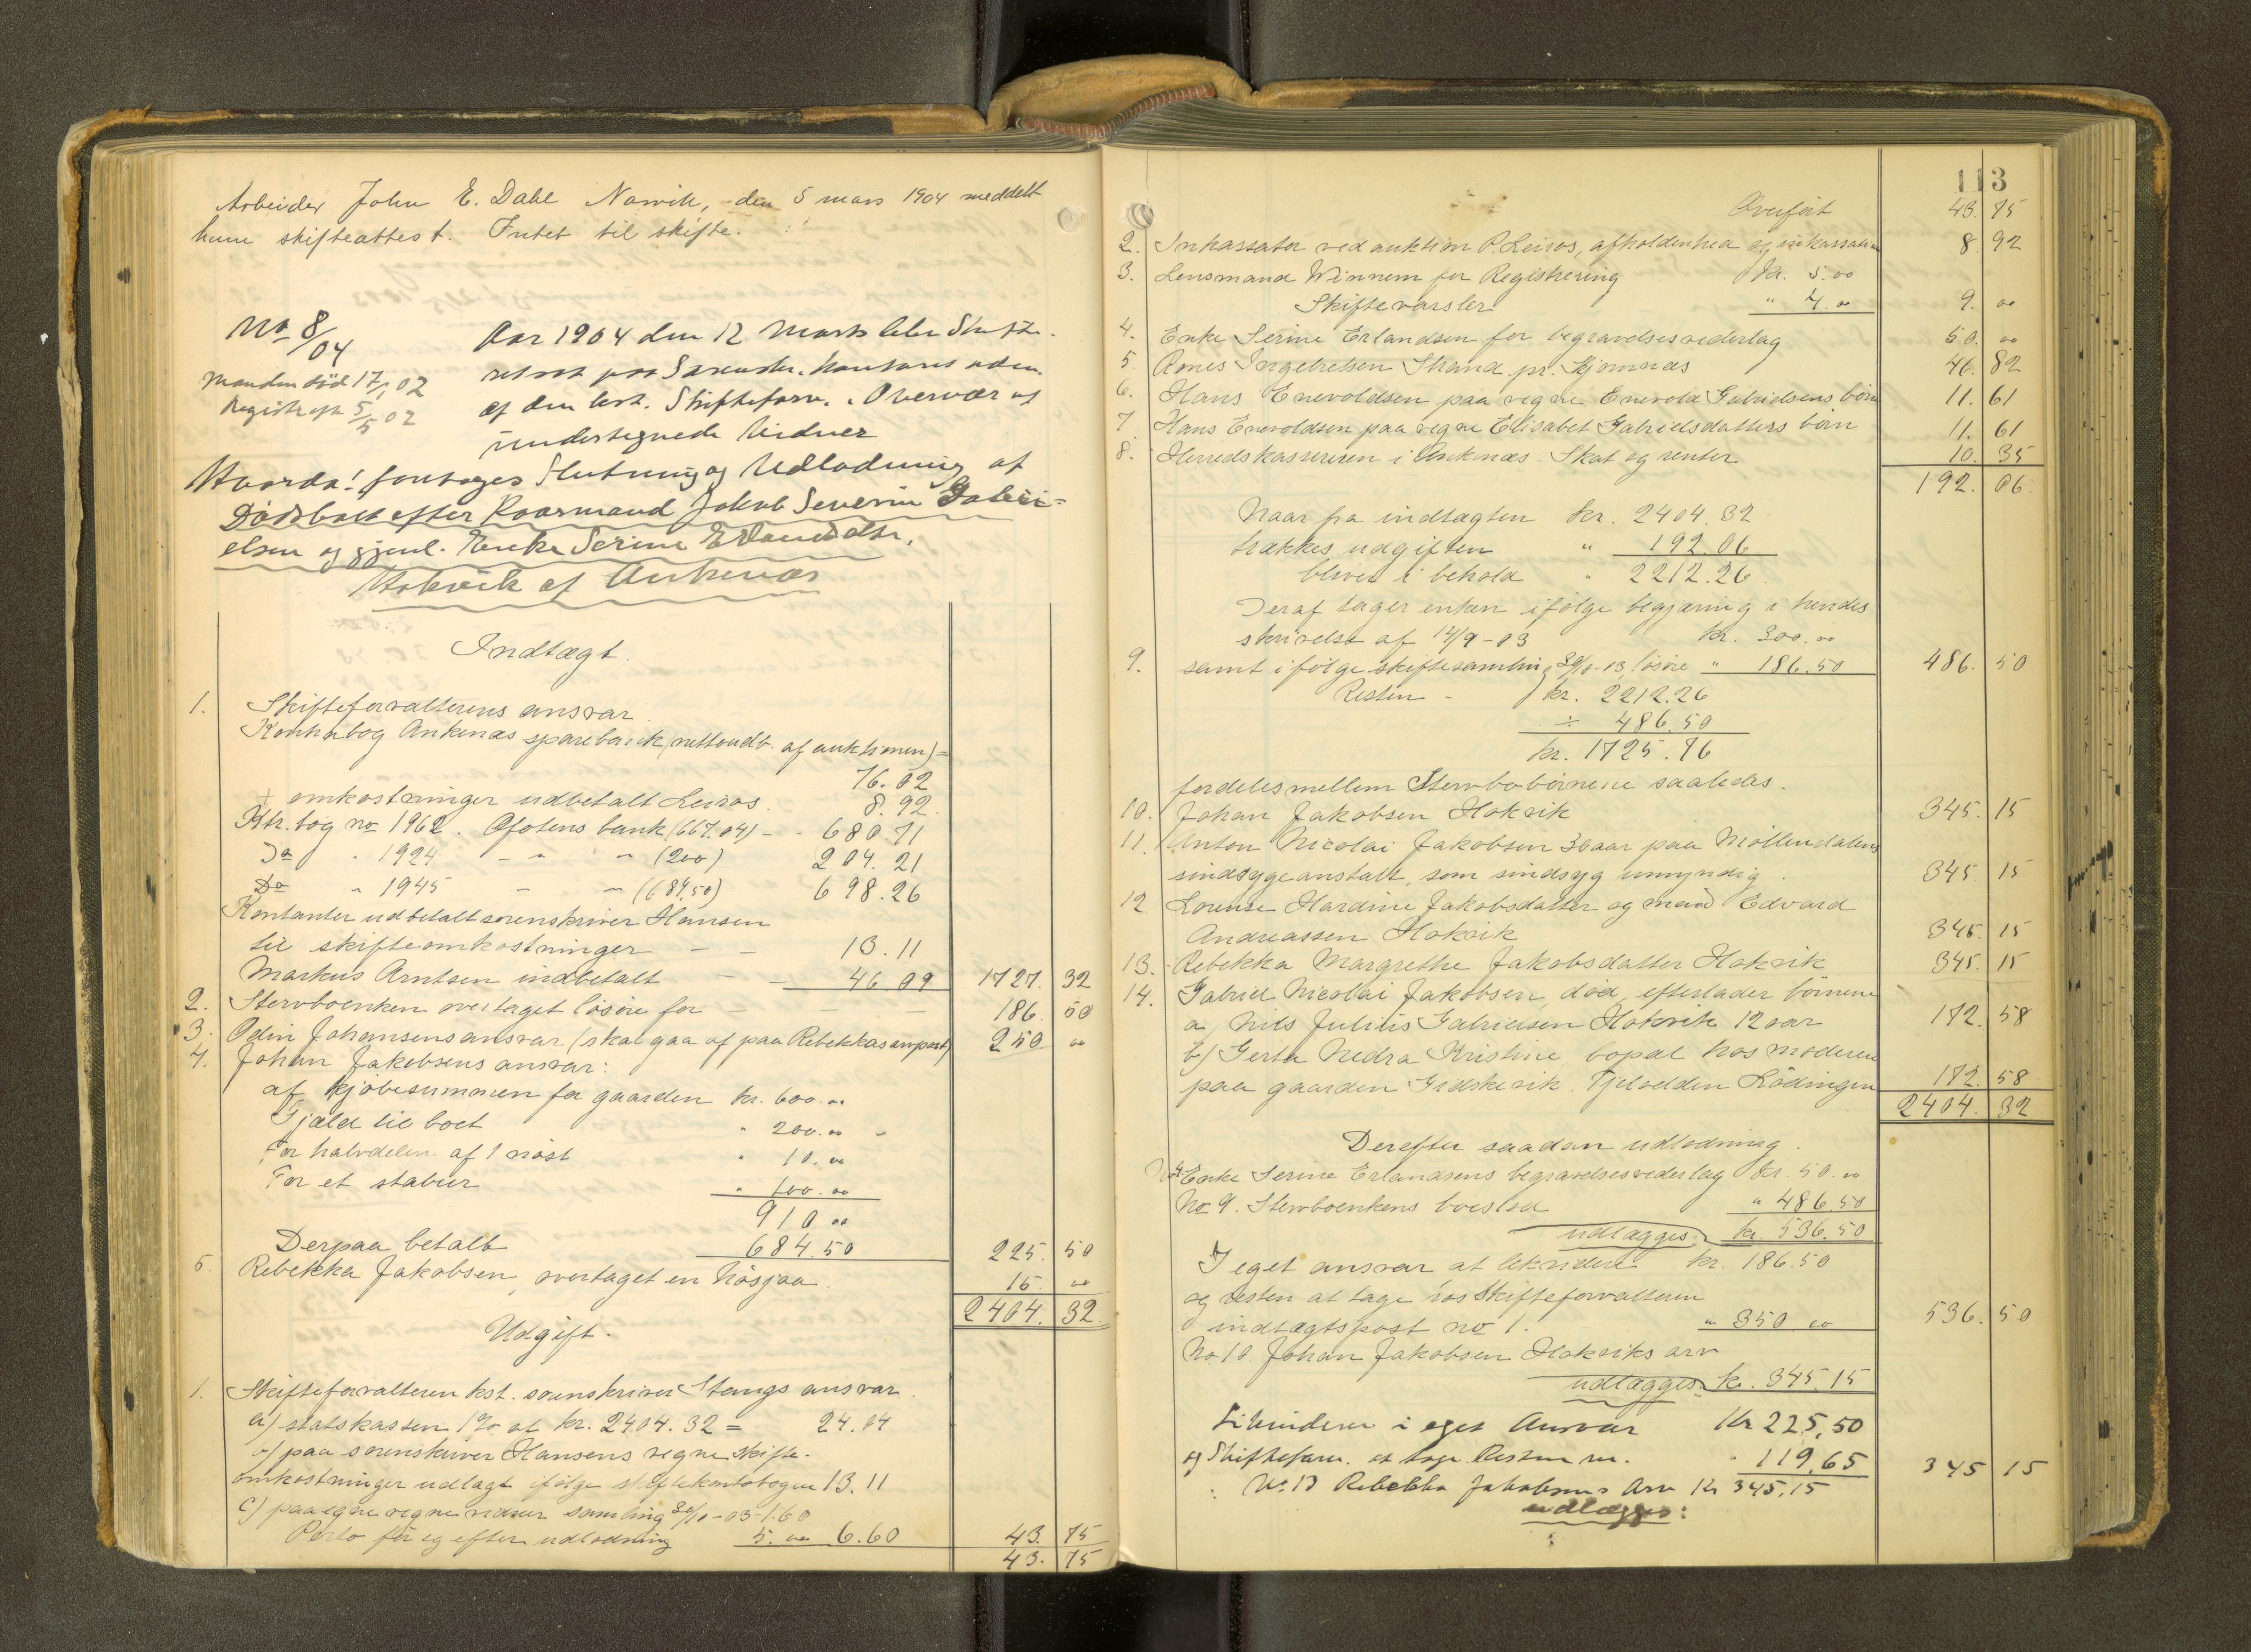 Arbeider John E. Dahl Narvik, den 5 mars 1904 meddelt
ham skifteattest. Intet til skifte.
No 8/04
Manden död 17/1 02
Registr. 5/5 02
Aar 1904 den 12 Marts blev Skifte-
ret sat paa Sorenskr. kontoret
af den kst. Skifteforv. i Overvær af
undertegnede Vidner
Hvorda! foretoges Slutning og Udlodning af
Dödsboet efter Kaarmand Jakob Severin Gabri-
elsen og gjenl. Enke Serine Erlandsdtr.
Haakvik af Ankenæs
Indtægt.
1. Skifteforvalterens ansvar.
Kontrabog Ankenæs sparebank (nettoudb. af auktionen) =
76.02
+ omkostninger udbetalt Leiros. 8.92
Ktr. bog no 1962. Ofotens bank (667.04) - 680.71
Do " 1924 - " " (200) 204.21
Do " 1945 - " (684.50) 698.26
Kontanter udbetalt sorenskriver Hansen
til skifteomkostninger - - 13.11
Markus Arntsen indbetalt - - 46 09 1727. 32
2. Stervboenken overtaget lösöre for - - - 186. 50
3. Odin Johansens ansvar (skal gaa af paa Rebekkas arvpart) 250 00
4. Johan Jakobsens ansvar:
af kjöbesummen for gaarden kr. 600.00
Gjæld til boet " 200.00 -
For halvdelen af 1 nöst " 10.00
For et stabur " 100.00
910 00
Derpaa betalt 684.50 225. 50
5. Rebekka Jakobsen, overtaget en hösjaa 15. 00
2404. 32
Udgift.
1. Skifteforvalteren kst. sorenskriver Stangs ansvar.
a) statskassen 1% af kr. 2404.32 = 24.04
b) paa sorenskriver Hansens regne skifte-
omkostninger udlagt ifölge skiftekontobogen 13.11
c) paa egne regne vidner samling 30/10-03-1.60
Porto för og efter udlodning 5.00 6.60 43. 75
43. 75
113
Overfört 43. 75
2. Inkassator ved auktion P. Leiros, afholdenhed og inkassation 8. 92
3. Lensmand Winnem for Registrering kr. 5.00
Skiftevarsler " 4.00 9. 00
4. Enke Serine Erlandsen for begravelsesvederlag 50. 00
5. Rones Ingebretsen Strand pr. Kjømnæs 46. 82
6. Hans Enevoldsen paa regne Enevold Gabrielsens börn 11. 61
7 Hans Enevoldsen paa regne Elisabet Gabrielsdatters börn 11. 61
8. Herredskassereren i Ankenæs Skat og renter 10. 35
192. 06
Naar fra indtægten kr. 2404.32
trækkes udgiften " 192.06
bliver i behold " 2212.26
Deraf tager enken ifölge begjæring i hendes
skrivelse af 14/9-03 kr. 300.00
9. samt ifölge skiftesamling 30/10-03 lösöre " 186.50 486. 50
Resten - kr. 2212.26
÷ 486.50
kr. 1725.76
fordeles mellem Stervbobörnene saaledes.
10. Johan Jakobsen Hokvik 345. 15
11. Anton Nicolai Jakobsen 30 aar paa Möllendalens
sindsygeanstalt, som sindsyg umyndig. 345. 15
12 Lovise Hardine Jakobsdatter og mand Edvard
Andreassen Hokvik 345. 15
13. Rebekka Margrethe Jakobsdatter Hokvik 345. 15
14. Gabriel Nicolai Jakobsen, död, efterlader börnene
a) Nils Julius Gabrielsen Hokvik 12 aar 172. 58
b) Gerta Nedra Kristine bopæl hos moderen
paa gaarden Fidskevik Tjeldelden Lödingen 172. 58
2404. 32
Derefter saadan udlodning.
No 4 Enke Serine Erlandsens begravelsesvederlag kr. 50.00
No 9. Stervboenkens boeslod " 486.50
udlægges: kr. 536.50
I eget ansvar at likvidere kr. 186.50
og resten at tage hos Skifteforvalteren
indtægtspost no 1. " 350 00 536. 50
No 10. Johan Jakobsen Hokviks arv
udlægges: kr. 345.15
Likviderer i eget Ansvar Kr 225,50
og Skifteforv. at tage Resten m. " 119,65 345 15
No. 13 Rebekka Jakobsens Arv Kr 345,15
udlægges: